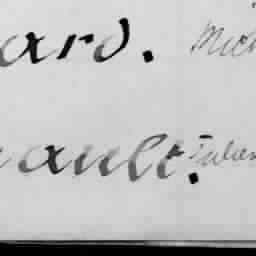 ard. Mich
ault. Julien